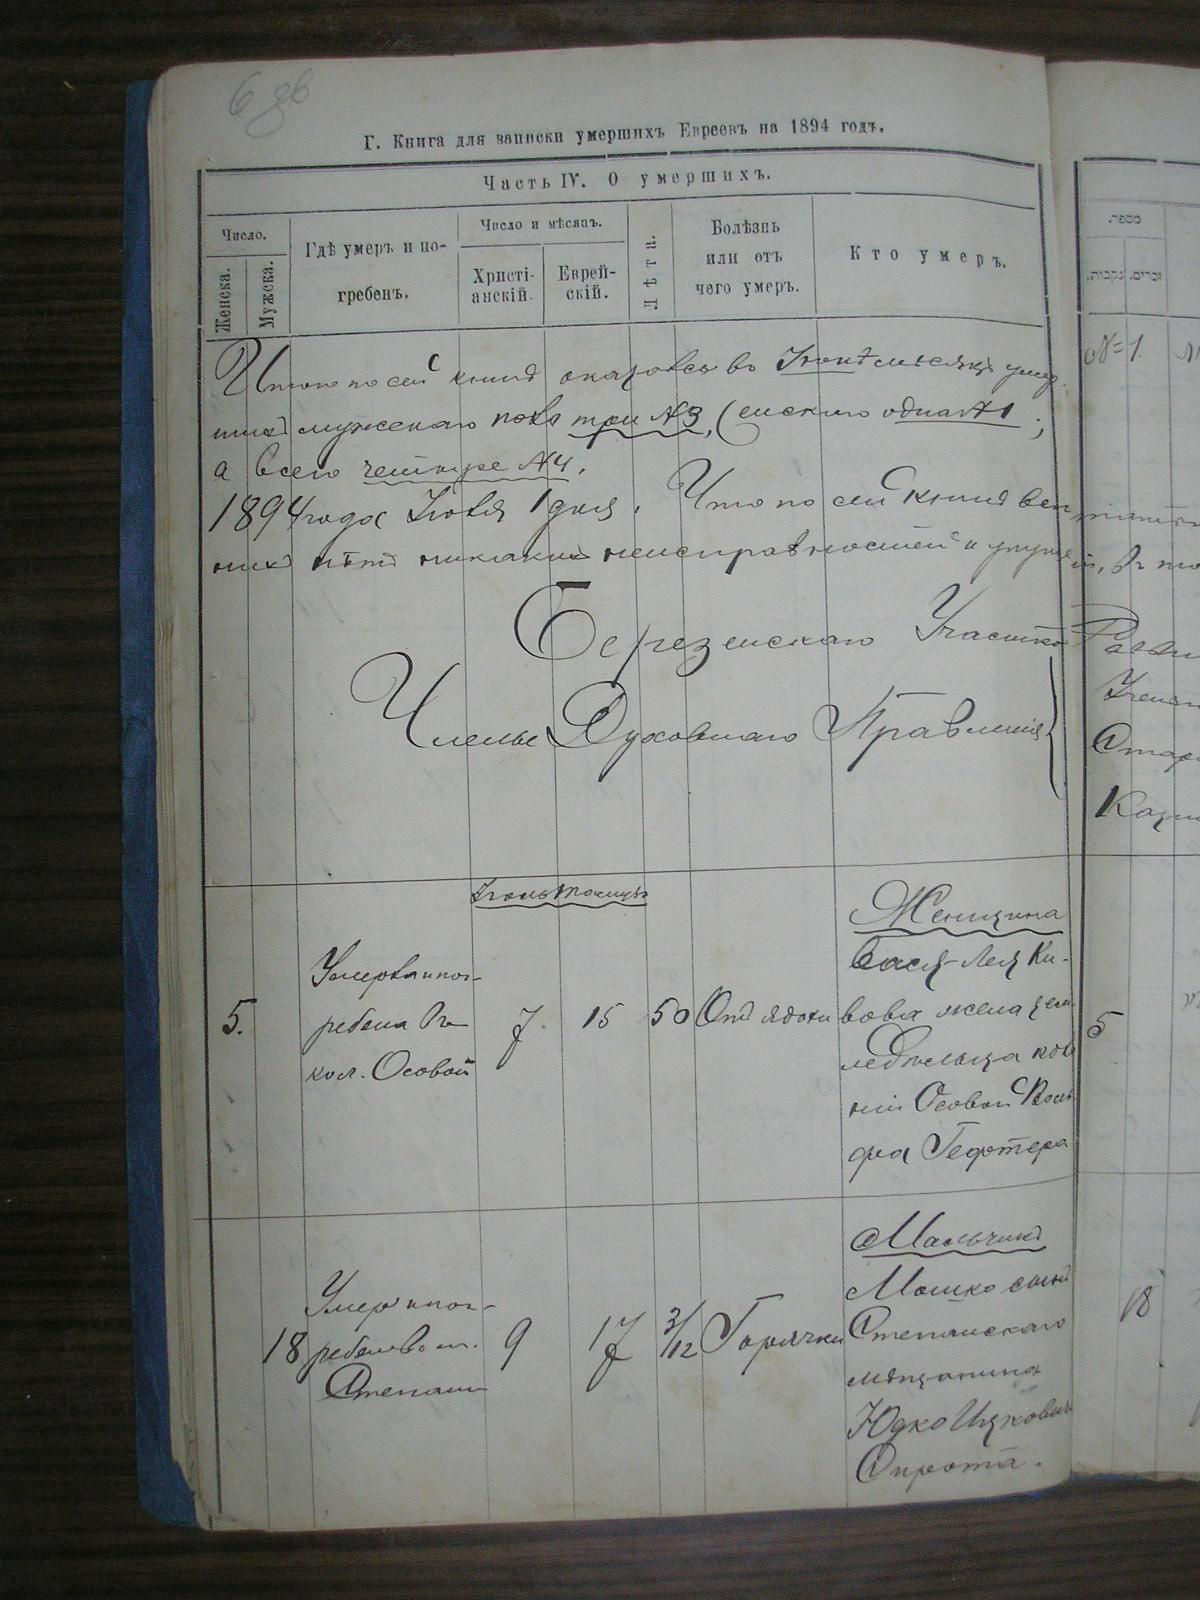 Г. Книга для записки умершихъ Евреевъ на 1894 годъ.
Часть IV. О умершихъ.
Число.
Женска.
Мужска.
Гдѣ умеръ и по-
гребенъ.
Число и мѣсяцъ.
Христі-
анскій.
Еврей-
скій.
Лѣта.
Болѣзнь
или отъ
чего умеръ.
Кто умеръ.
מספר.
נקבות.
זכרים.
Итого по сей книгѣ оказалось въ Іюнѣ мѣсяцѣ умер-
шихъ мужскаго пола три №3, женскаго одна №1;
а всего четыре №4.
№=1.
1894 года Іюля 1 дня. Что по сей книгѣ
нихъ нѣтъ никакихъ неисправностей и
Березенскаго Участка
Члены Духовнаго Правленія
Іюль мѣсяцъ
5.
Умерла и пог-
ребена въ
кол. Осовой
7
15
50
Женщина
Бася-Лея Ки-
вова жена зем
ледѣльца коло
ніи Осовой Воль
фа Гефтера
5
18
Умеръ и пог-
ребенъ въ м.
Степани
9
17
3/12
Горячки
Мальчикъ
Мошко сынъ
Степанскаго
мѣщанина
Юдко Ицковичъ
Сирота.
18